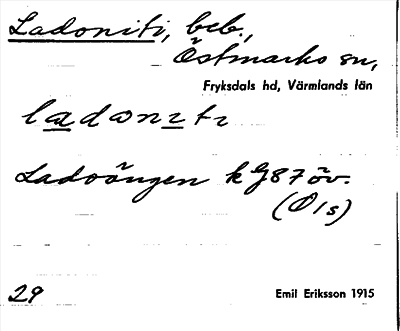 Ladoniti, beb.,
Östmarks sn,
Fryksdals hd, Värmlands län
ladoniti
Ladoängen k G87 öv.
(Ö/s)
29
Emil Eriksson 1915